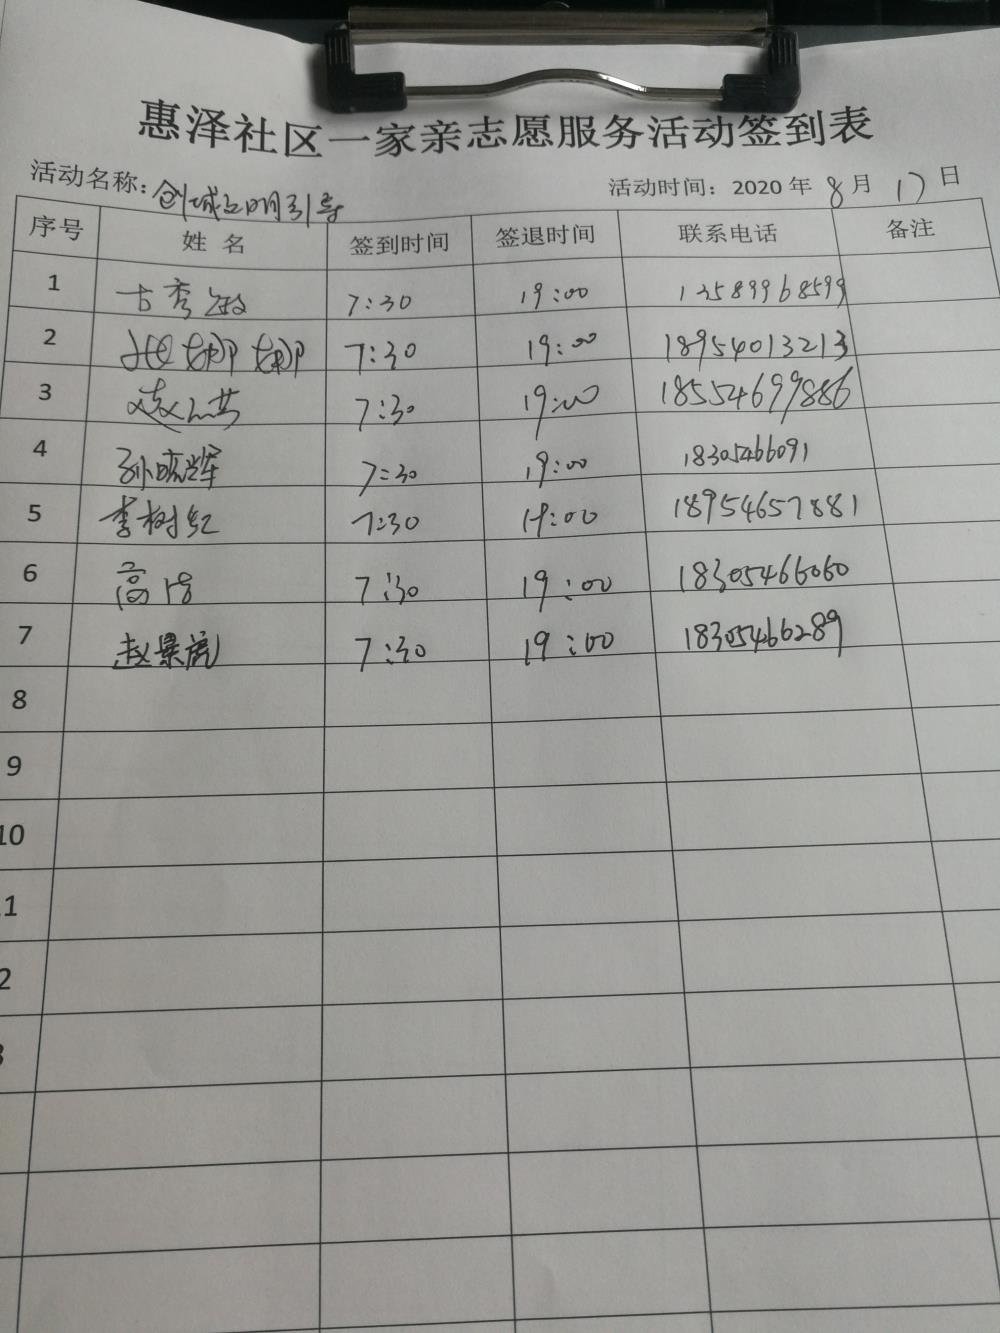 惠泽社区一家亲志愿服务活动签到表
活动名称：创城文明引导 活动时间：2020 年 8 月 17 日
序号 姓 名 签到时间 签退时间 联系电话 备注
1 古秀敏 7:30 19:00 13589968599
2 娜娜 7:30 19:00 18954013213
3 7:30 19:00 18554699886
4 孙晓辉 7:30 19:00 18305466091
5 李树红 7:30 19:00 18954657881
6 高 7:30 19:00 18305466060
7 赵景虎 7:30 19:00 18305466289
8
9
10
11
2
3